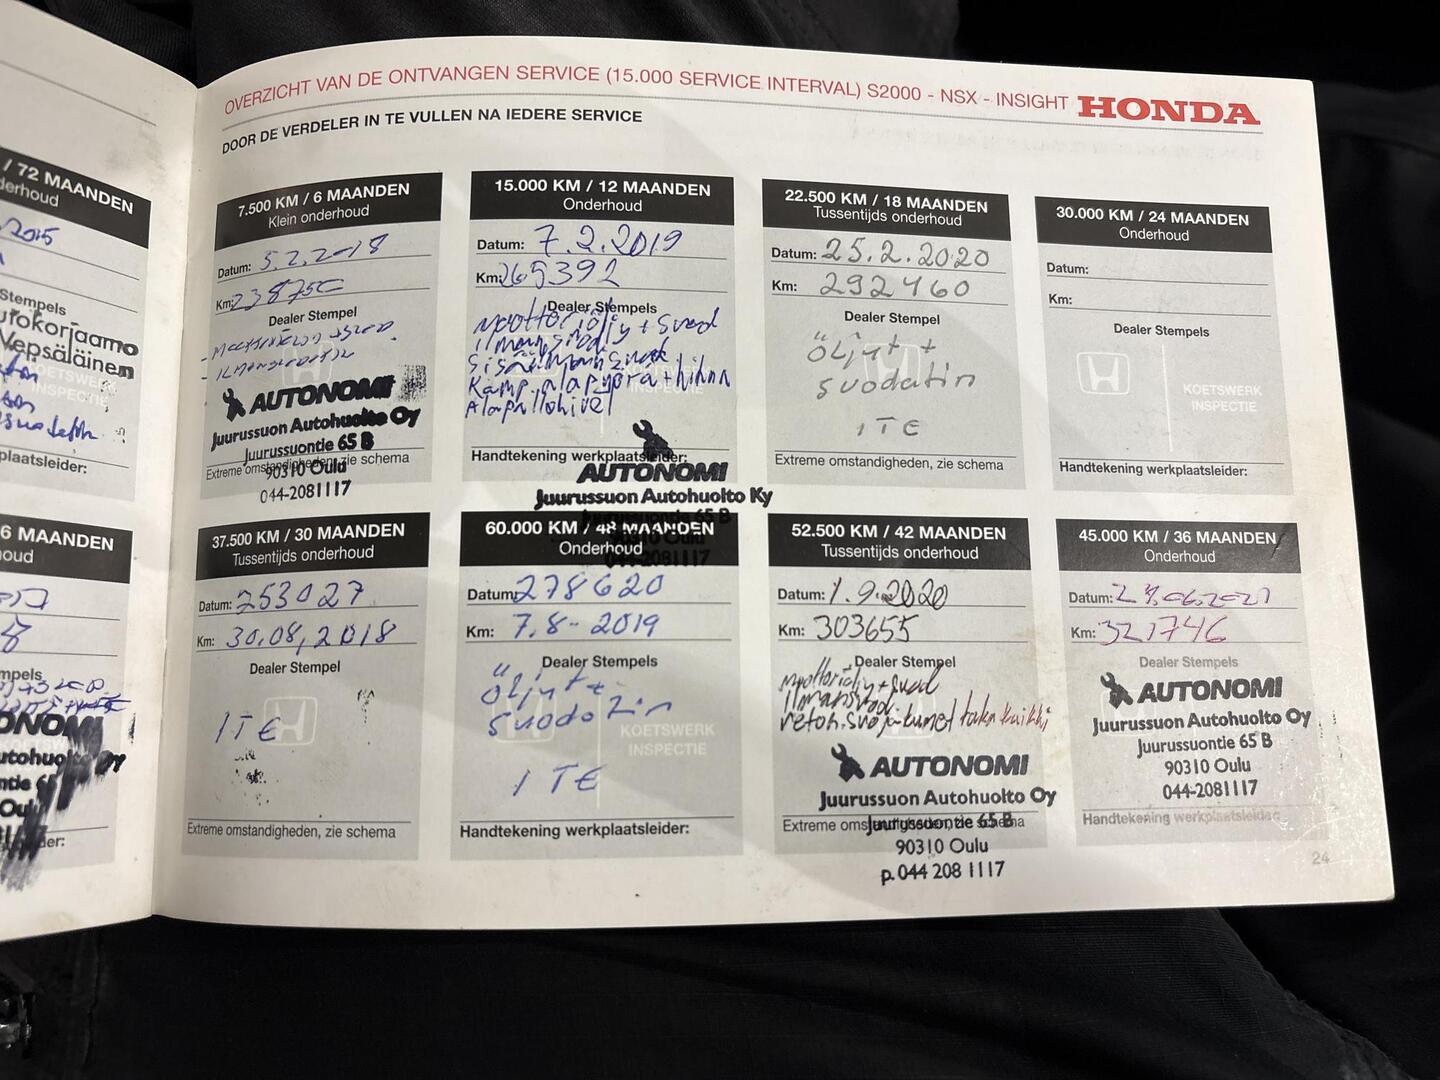 OVERZICHT VAN DE ONTVANGEN SERVICE (15.000 SERVICE INTERVAL) S2000 - NSX - INSIGHT HONDA
DOOR DE VERDELER IN TE VULLEN NA IEDERE SERVICE
/ 72 MAANDEN
derhoud
2015
Stempels
utokorjaamo
Vepsäläinen
KOETSWERK
INSPECTIE
plaatsleider:
6 MAANDEN
oud
mpels
ONOMI
utohuolto Oy
ntie 65
Oulu
der:
7.500 KM / 6 MAANDEN
Klein onderhoud
Datum: 5.2.2018
Km:
Dealer Stempel
AUTONOMI
Juurussuon Autohuolto Oy
Juurussuontie 65 B
Extreme omstandigheden, zie schema
90310 Oulu
044-2081117
15.000 KM / 12 MAANDEN
Onderhoud
Datum: 7.2.2019
Km: 265392
Dealer Stempels
Moottoriöljy + suod
ilmansuod
Sisäilmansuod
Kamp. alapyörä + hihna
Alapallonivel
INSPECTIE
Handtekening werkplaatsleider:
AUTONOMI
Juurussuon Autohuolto Ky
Juurussuontie 65 B
90310 Oulu
044-2081117
22.500 KM / 18 MAANDEN
Tussentijds onderhoud
Datum: 25.2.2020
Km: 292460
Dealer Stempel
öljyt +
suodatin
ITE
Extreme omstandigheden, zie schema
30.000 KM / 24 MAANDEN
Onderhoud
Datum:
Km:
Dealer Stempels
KOETSWERK
INSPECTIE
Handtekening werkplaatsleider:
37.500 KM / 30 MAANDEN
Tussentijds onderhoud
Datum: 253027
Km: 30.08.2018
Dealer Stempel
ITE
Extreme omstandigheden, zie schema
60.000 KM / 48 MAANDEN
Onderhoud
Datum: 278620
Km: 7.8-2019
Dealer Stempels
öljyt +
suodatin
KOETSWERK
INSPECTIE
ITE
Handtekening werkplaatsleider:
52.500 KM / 42 MAANDEN
Tussentijds onderhoud
Datum: 1.9.2020
Km: 303655
Dealer Stempel
Moottoriöljy + suod
ilmansuod
vetoniv.suojakumet taka kaikki
AUTONOMI
Juurussuon Autohuolto Oy
Extreme omstandigheden, zie schema
Juurussuontie 65 B
90310 Oulu
p. 044 208 1117
45.000 KM / 36 MAANDEN
Onderhoud
Datum:
Km: 321746
Dealer Stempels
AUTONOMI
Juurussuon Autohuolto Oy
Juurussuontie 65 B
90310 Oulu
044-2081117
Handtekening werkplaatsleider
24